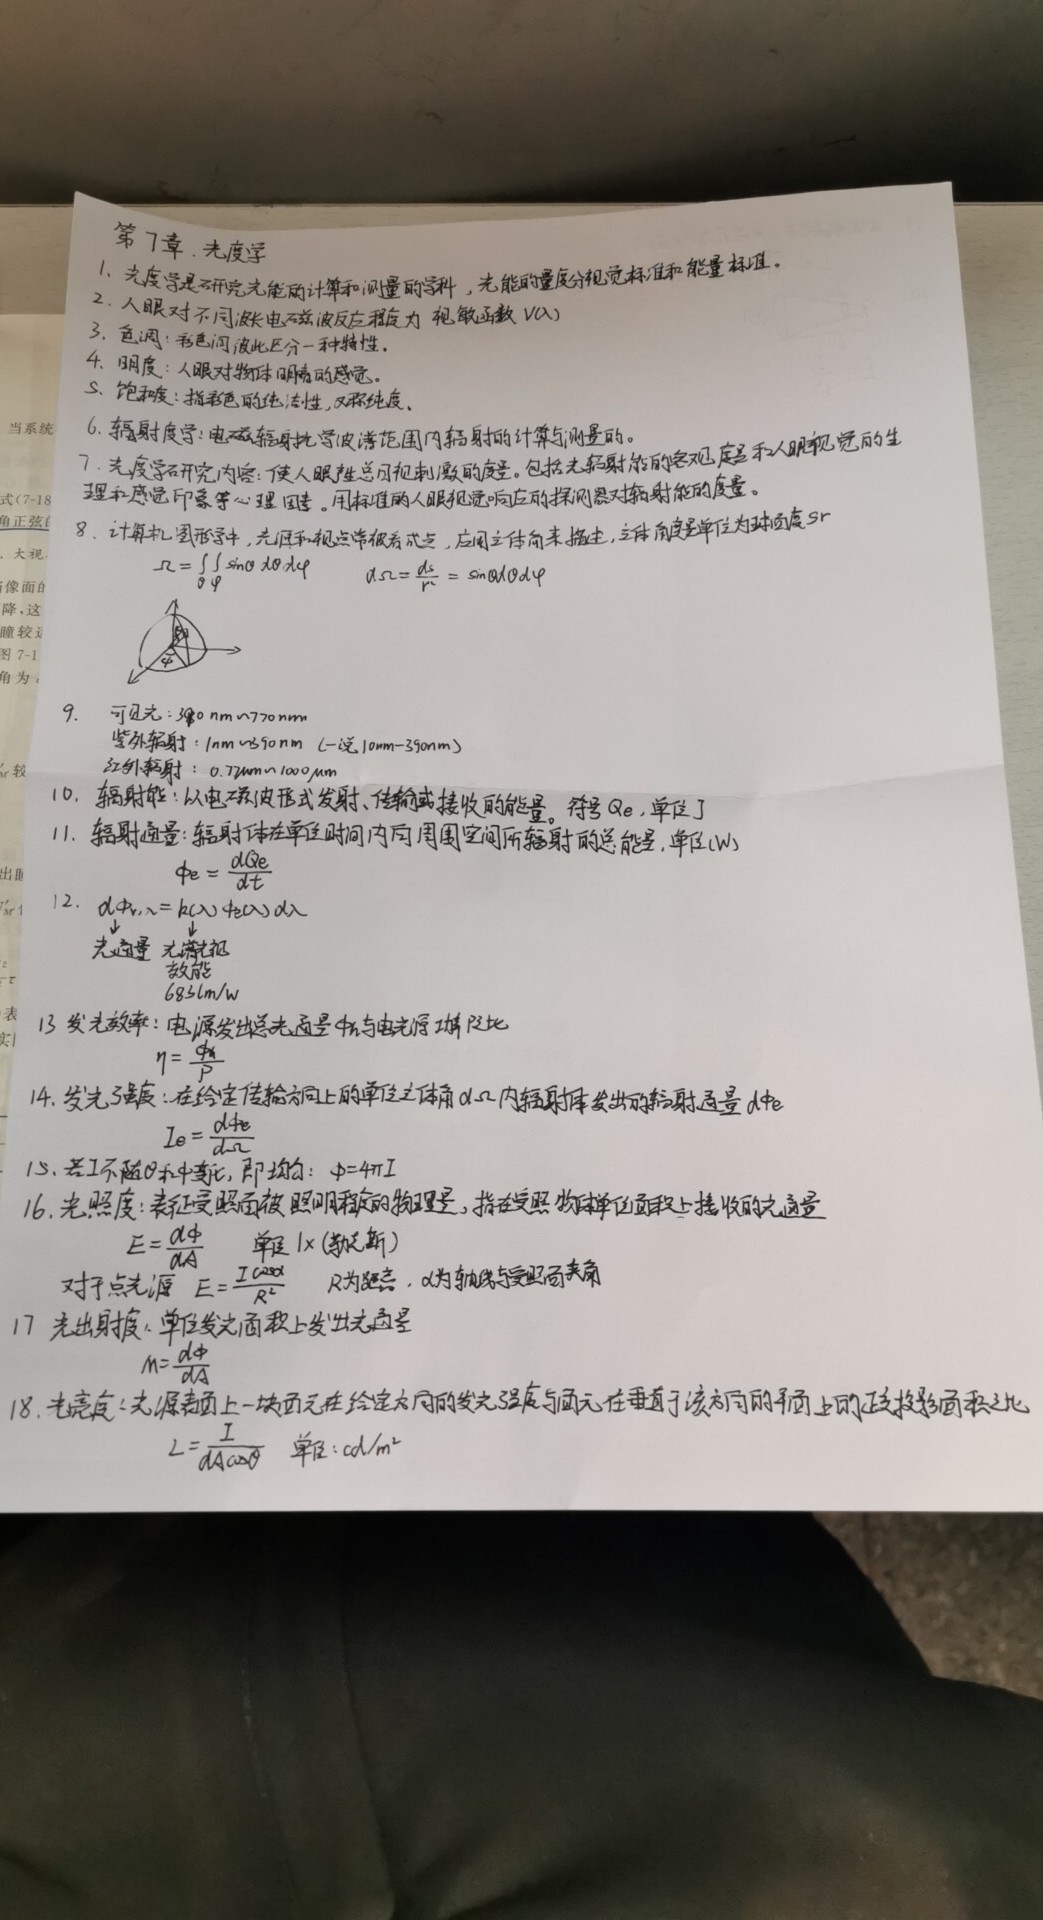 第7章.光度学
1、光度学是研究光能的计算和测量的学科，光能的量度分视觉标准和能量标准。
2、人眼对不同波长电磁波反应程度为 视敏函数 V(λ)
3、色调：彩色间彼此区分一种特性。
4、明度：人眼对物体明暗的感觉。
5、饱和度：指彩色的纯洁性，又称纯度。
6、辐射度学：电磁辐射光学波谱范围内辐射的计算与测量的。
7、光度学研究内容：使人眼产生总的视刺激的度量。包括光辐射能的客观度量和人眼视觉的生
理和感觉印象等心理因素。用标准的人眼视觉响应的探测器对辐射能的度量。
8、计算机图形学中，光源和视点常被看成点，应用立体角来描述，立体角度量单位为球面度sr
Ω=∫∫sinθ dθ dφ dΩ=ds/r²=sinθdθdφ
θ φ
φ
9. 可见光：390nm~770nm
紫外辐射：1nm~390nm (一说10nm-390nm)
红外辐射：0.77μm~1000μm
10、辐射能：以电磁波形式发射、传输或接收的能量。符号Qe，单位J
11、辐射通量：辐射体在单位时间内向周围空间所辐射的总能量，单位(W)
Φe=dQe/dt
12、dΦv,λ=k(λ)Φe(λ)dλ
↓ ↓
光通量 光谱光视
效能
683lm/W
13 发光效率：电源发出总光通量Φ与电光源功率P之比
η=Φ/P
14、发光强度：在给定传输方向上的单位立体角dΩ内辐射体发出的辐射通量dΦe
Ie=dΦe/dΩ
15、若I不随θ和φ变化，即均匀：Φ=4πI
16、光照度：表征受照面被照明程度的物理量，指在受照物体单位面积上接收的光通量
E=dΦ/dA 单位lx(勒克斯)
对于点光源 E=Icosα/R² R为距离，α为轴线与受照面夹角
17 光出射度：单位发光面积上发出光通量
M=dΦ/dA
18、光亮度：光源表面上一块面元在给定方向的发光强度与面元在垂直于该方向的平面上的正投影面积之比
L=I/dAcosθ 单位：cd/m²
当系统
式(7-18
角正弦的
. 大视
像面的
降，这
瞳较近
图7-1
角为
较
出瞳
表
实